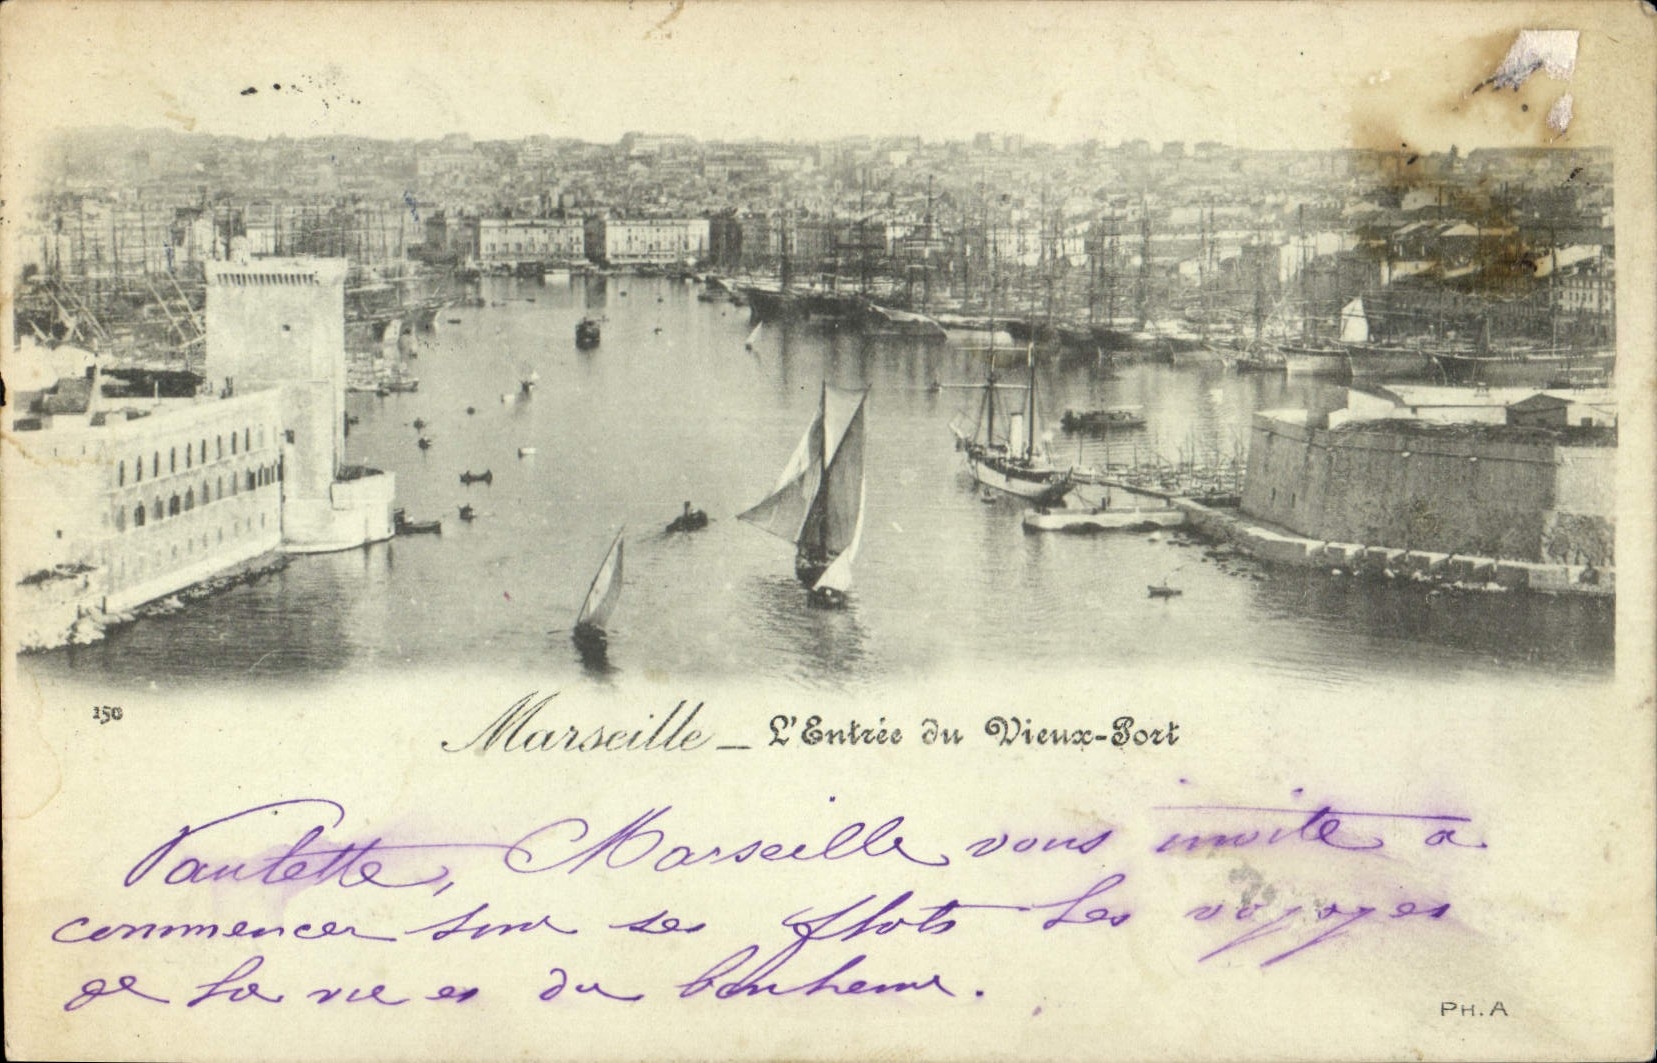 150
Marseille – L'Entrée du Vieux-Port
Paulette, Marseille vous invite à
commencer sur ses flots les voyages
de la vie et du bonheur.
PH. A